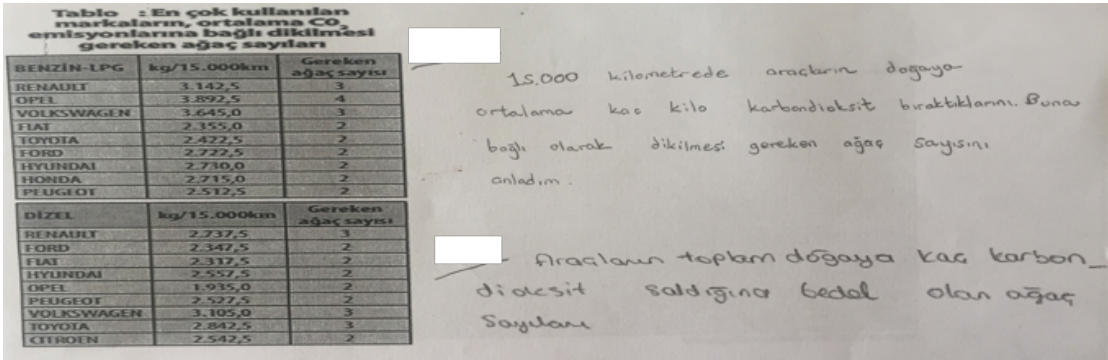 Tablo : En çok kullanılan
markaların, ortalama CO₂
emisyonlarına bağlı dikilmesi
gereken ağaç sayıları
BENZİN-LPG kg/15.000km Gereken ağaç sayısı
RENAULT 3.142,5 3
OPEL 3.892,5 4
VOLKSWAGEN 3.645,0 3
FIAT 2.355,0 2
TOYOTA 2.422,5 2
FORD 2.722,5 2
HYUNDAI 2.730,0 2
HONDA 2.715,0 2
PEUGEOT 2.512,5 2
DİZEL kg/15.000km Gereken ağaç sayısı
RENAULT 2.737,5 3
FORD 2.347,5 2
FIAT 2.317,5 2
HYUNDAI 2.557,5 2
OPEL 1.935,0 2
PEUGEOT 2.527,5 2
VOLKSWAGEN 3.105,0 3
TOYOTA 2.842,5 3
CITROEN 2.542,5 2
15.000 kilometrede araçların doğaya
ortalama kaç kilo karbondioksit bıraktıklarını. Buna
bağlı olarak dikilmesi gereken ağaç sayısını
anladım.
Araçların toplam doğaya kaç karbon_
dioksit saldığına bedel olan ağaç
sayıları